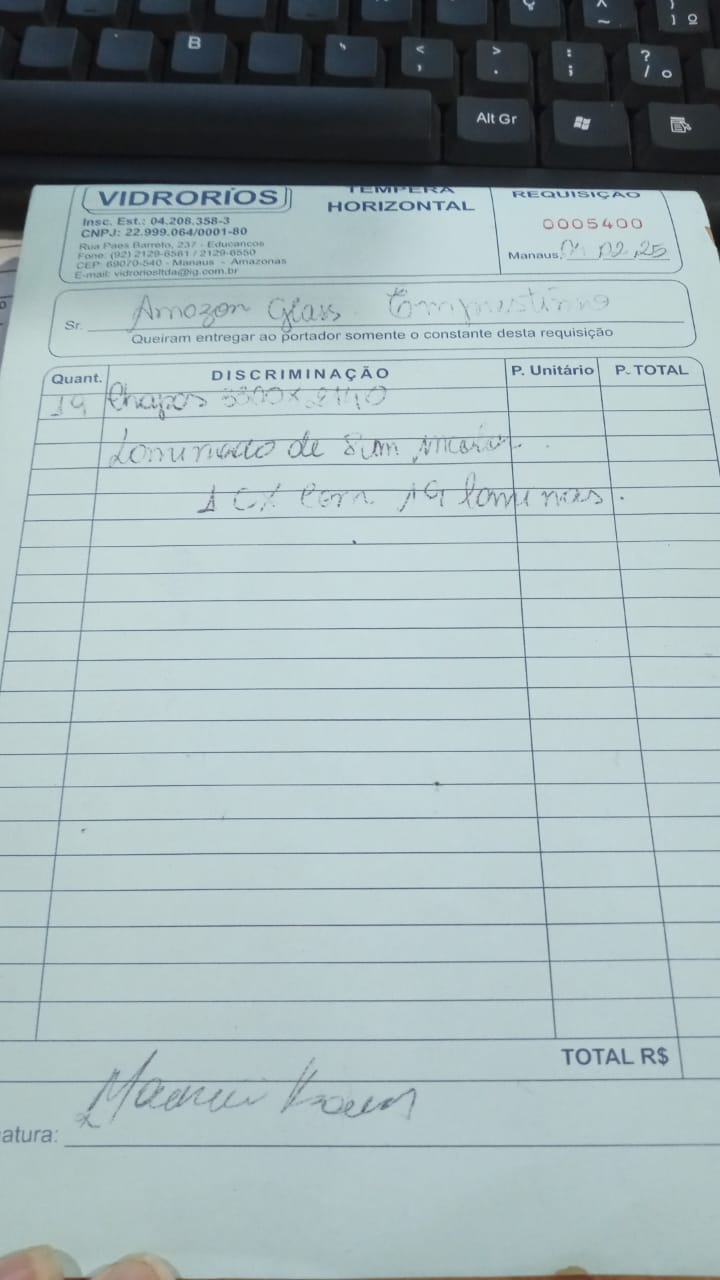 VIDRORIOS
Insc. Est.: 04.208.358-3
CNPJ: 22.999.064/0001-80
Rua Paes Barreto, 237 - Educancos
Fone: (92) 2129-6561 / 2129-6550
CEP: 69070-540 - Manaus - Amazonas
E-mail: vidroriosltda@ig.com.br
TEMPERA
HORIZONTAL
REQUISIÇÃO
0005400
Manaus, 02.25
Sr. Amazon Glass
Queiram entregar ao portador somente o constante desta requisição
Quant. DISCRIMINAÇÃO P. Unitário P. TOTAL
19 Chapas 3300x2140
Lominado de 8mm
1 CX com 19 lominas.
TOTAL R$
atura:
B
Alt Gr